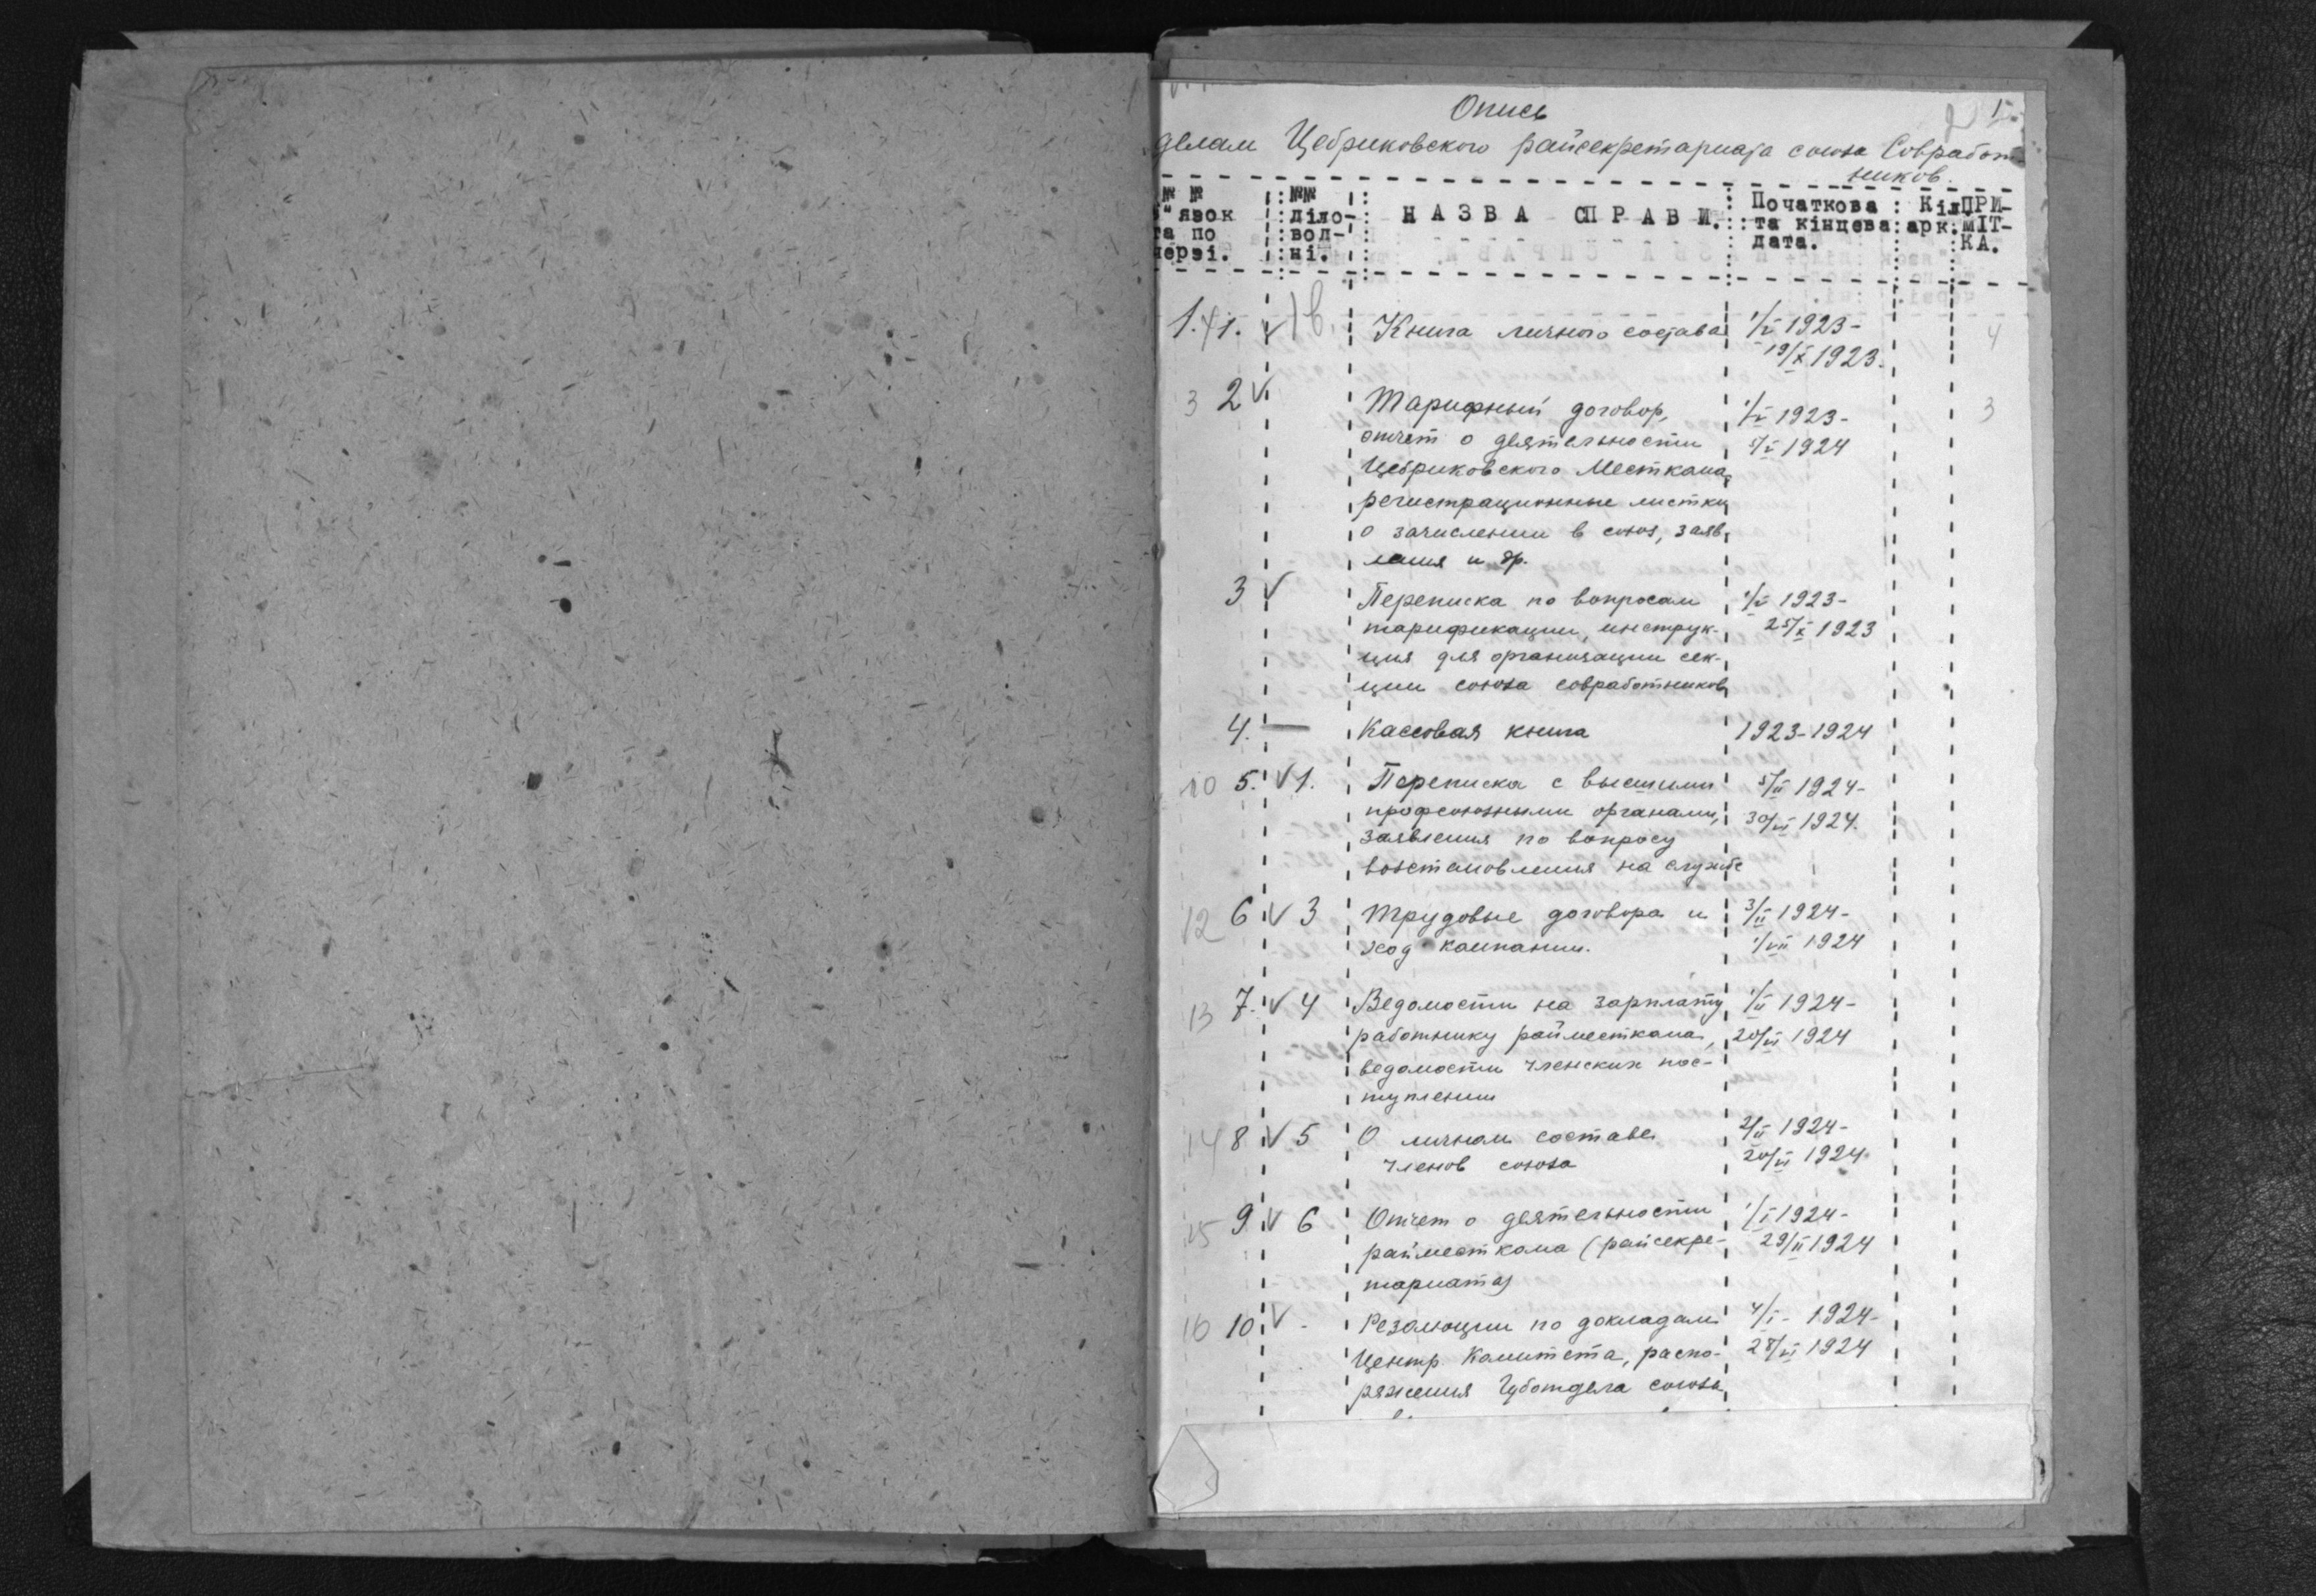 1
Опись
делам Цебриковского райсекретариата союза Совработ-
ников.
№ № №№ НАЗВА СПРАВИ. Початкова Кіл. ПРИ-
в"язок діло- та кінцева арк. МІТ-
та по вод- дата. КА.
черзі. ні.
1. 1. Книга личного состава 1/V 1923- 4
19/X 1923.
3 2 Тарифный договор, 1/V 1923- 3
отчет о деятельности 5/V 1924
Цебриковского Месткома,
регистрационные листки
о зачислении в союз, заяв
ления и др.
3 Переписка по вопросам 1/V 1923-
тарификации, инструк- 25/X 1923
ция для организации сек-
ции союза совработников
4. — Кассовая книга 1923-1924
10 5. 1. Переписка с высшими 5/II 1924-
профсоюзными органами, 30/VI 1924.
заявления по вопросу
востановления на службе
12 6 3 Трудовые договора и 3/II 1924-
ход кампании. 1/VII 1924
13 7. 4 Ведомости на зарплату 1/II 1924-
работнику райместкома, 20/VI 1924
ведомости членских пос-
туплении
14 8 5 О личном составе 2/II 1924-
членов союза 20/VI 1924
15 9 6 Отчет о деятельности 1/I 1924-
райместкома (райсекре- 29/II 1924
тариата)
16 10 - Резолюции по докладам 4/I- 1924-
Центр. Комитета, распо- 28/VI 1924
ряжения Губотдела союза